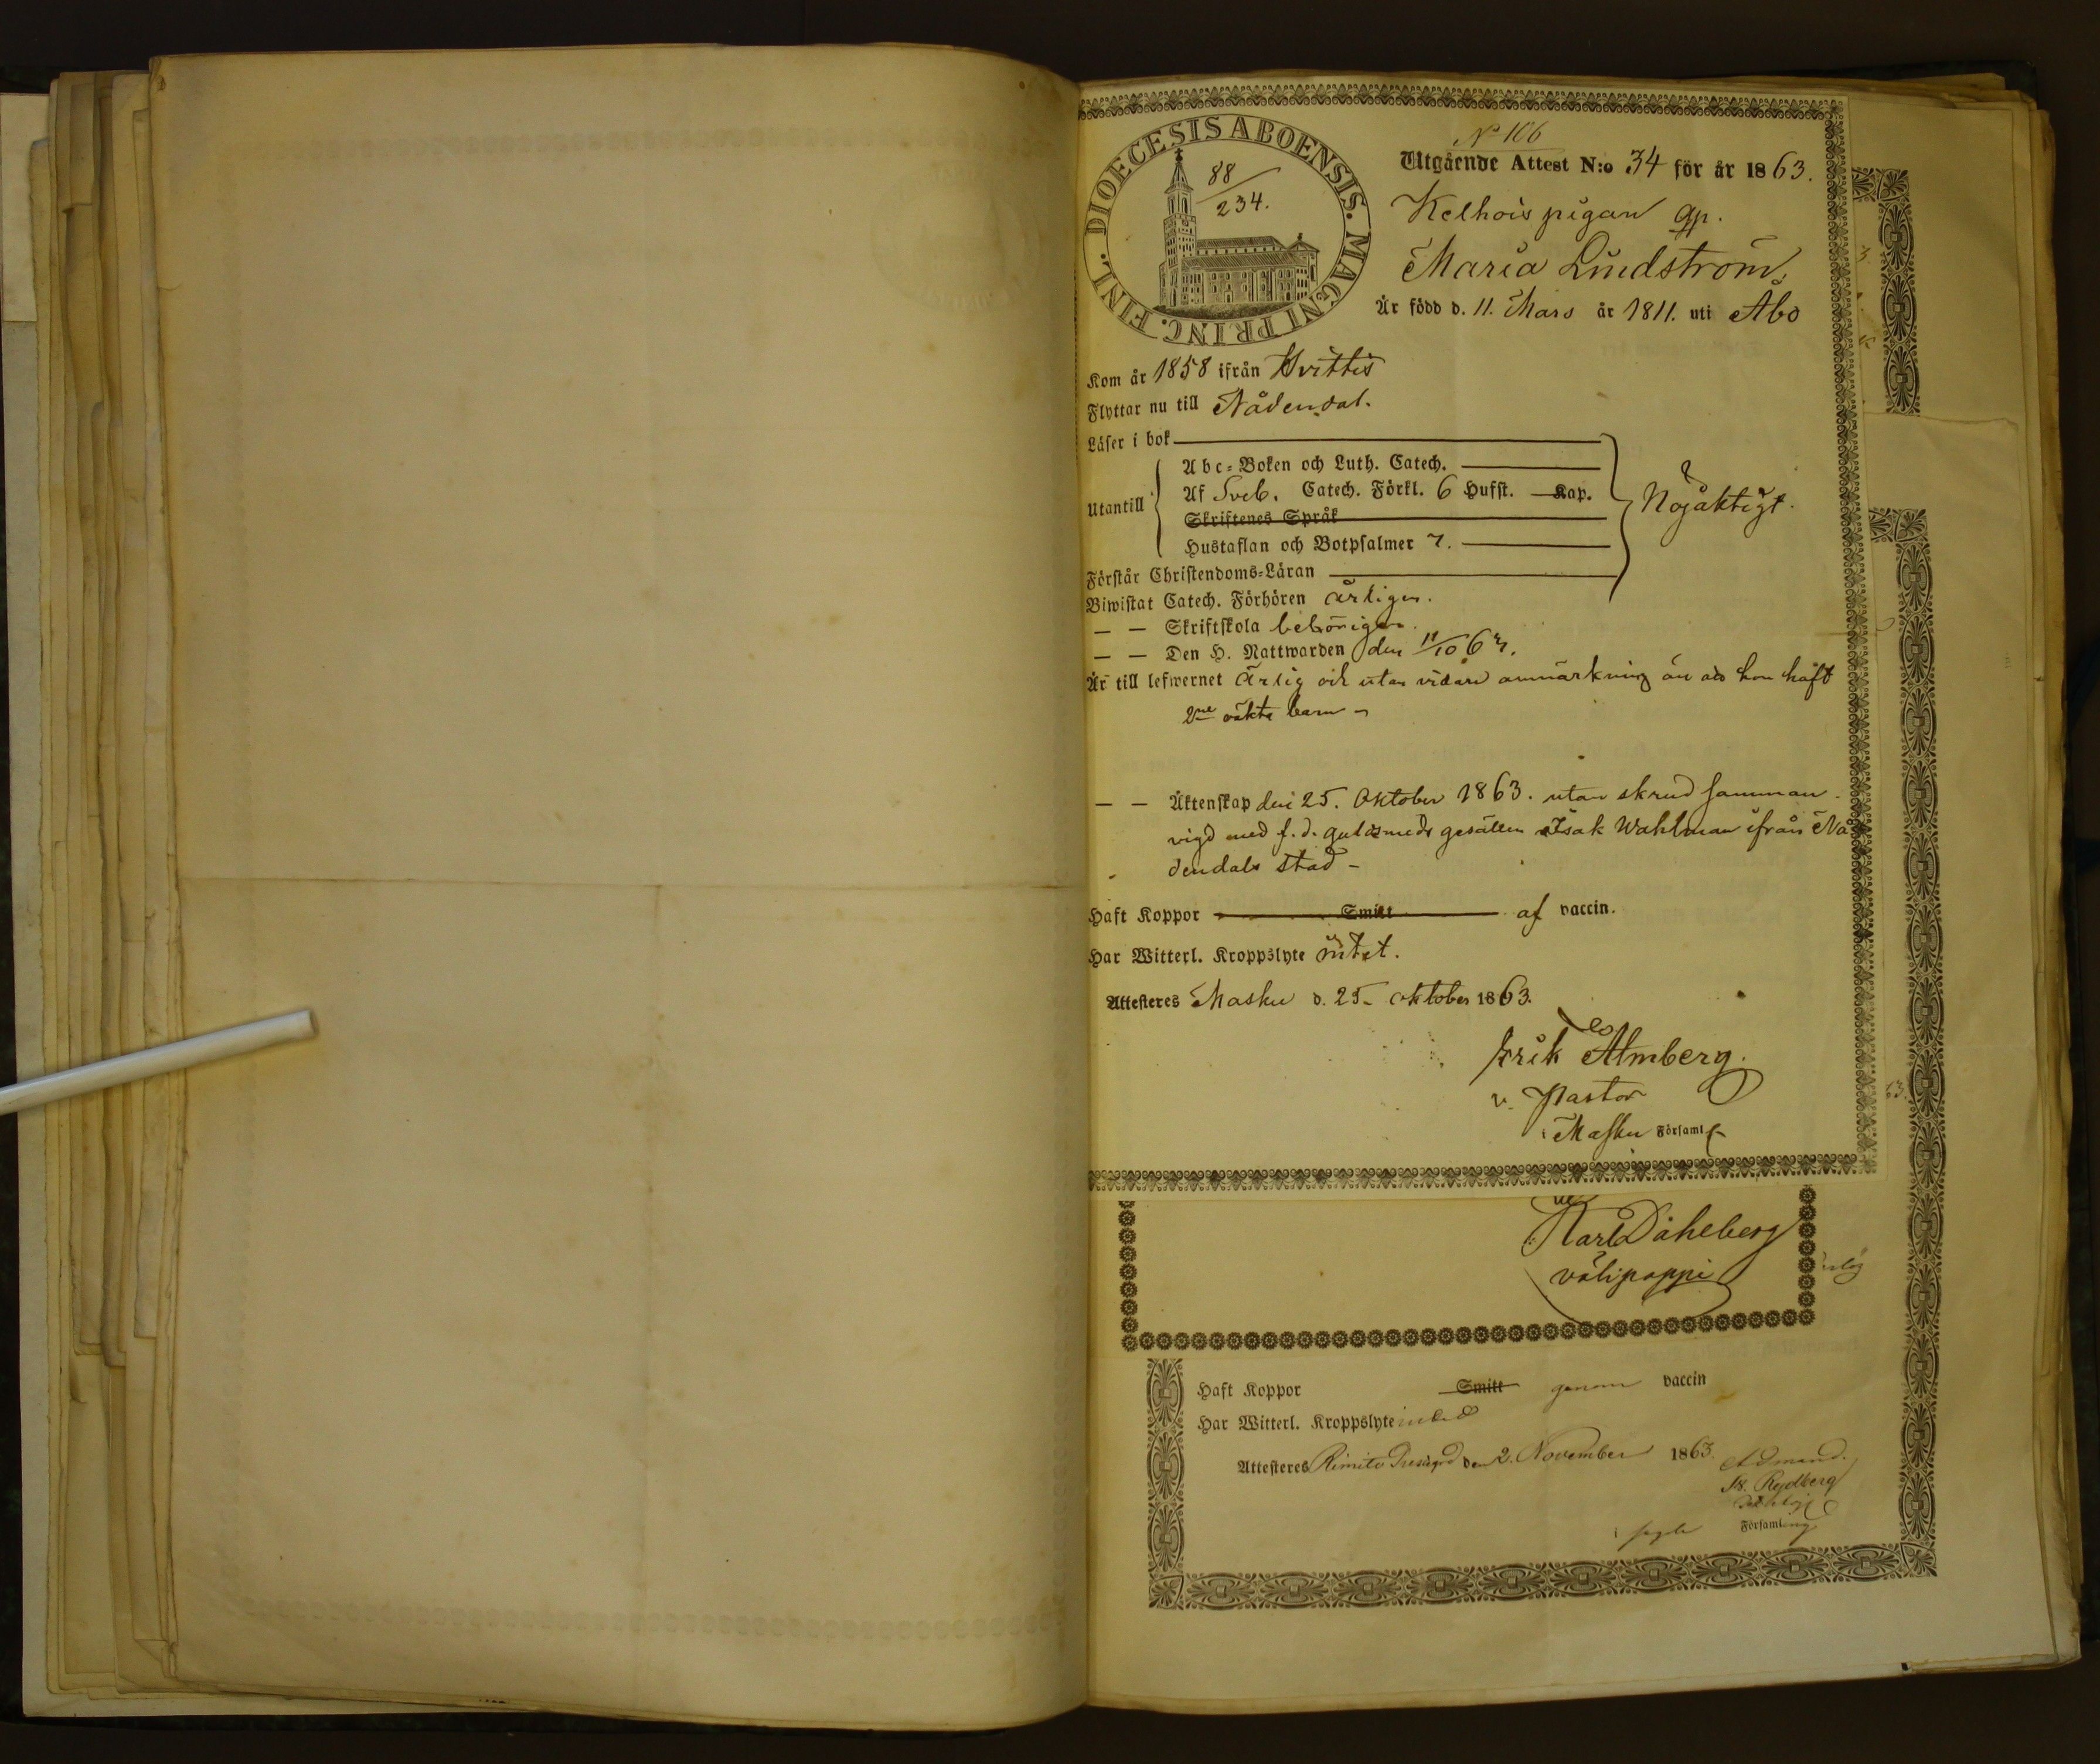 DIOECESIS ABOENSIS. MAGNI PRINC. FINL.
88
234.
N:o 106
Utgående Attest N:o 34 för år 1863.
Kelhois pigan gp.
Maria Lindström,
Är född d. 11. Mars år 1811. uti Åbo
Kom år 1858 ifrån Hvittis
Flyttar nu till Nådendal.
Läser i bok
Utantill
Abc-Boken och Luth. Catech.
Af Sveb. Catech. Förkl. 6 Hufst. Kap.
Skriftenes Språk
Hustaflan och Botpsalmer 7.
Nöjaktigt.
Förstår Christendoms-Läran
Biwistat Catech. Förhören årligen.
— — Skriftskola behörigen.
— — Den H. Nattwarden den 11/10 63.
Är till lefwernet Ärlig och utan vidare anmärkning än att hon haft
2ne oäkta barn –
— — Äktenskap den 25. Oktober 1863. utan skrud samman
vigd med f. d. guldsmeds gesällen Isak Wahlman ifrån Nå
dendals stad –
Haft Koppor Smitt af vaccin.
Har Witterl. Kroppslyte intet.
Attesteres Masku d. 25. Oktober 1863.
Erik Almberg.
v. Pastor
i Masku Församl
Karl Dahlberg
välipappi
Haft Koppor Smitt genom vaccin
Har Witterl. Kroppslyte intet
Attesteres Rimito den 2. November 1863.
Rydberg
Församling